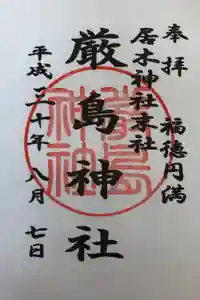 奉拝
福徳円満
居木神社末社
厳島神社
平成三十年八月七日
厳島神社